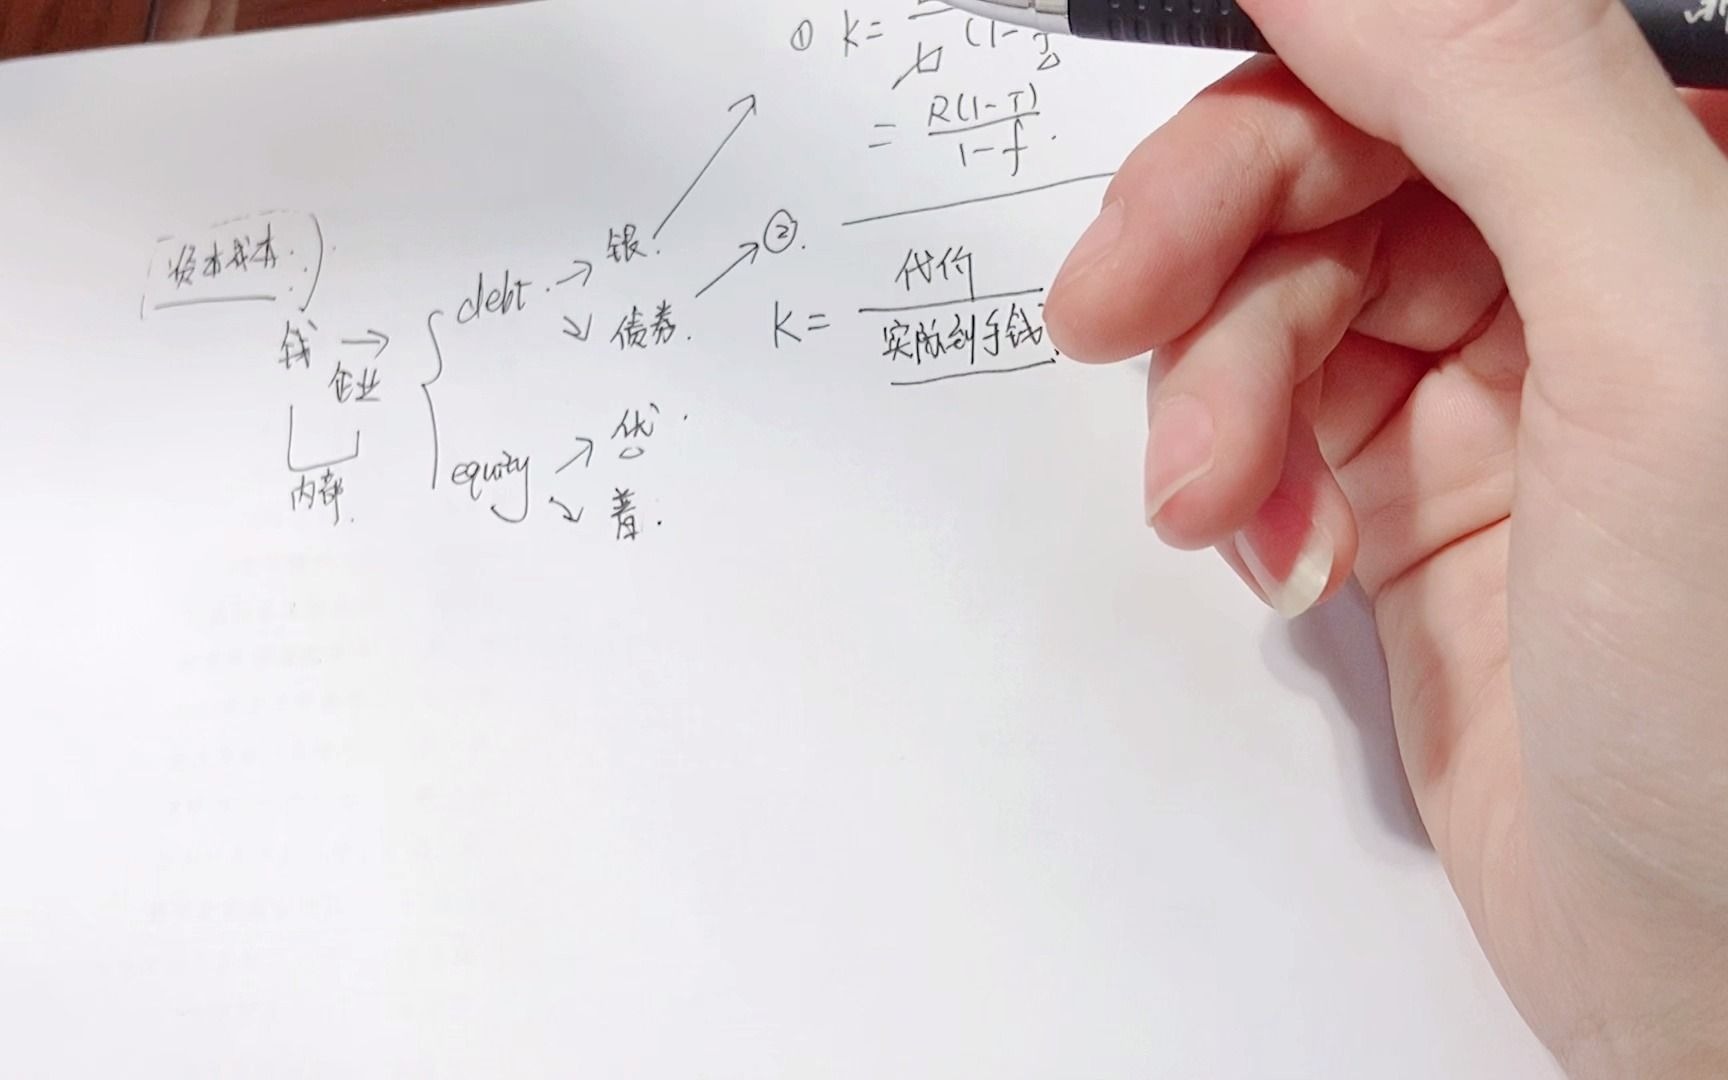 ① K=
(1-f
= R(1-T)
1-f.
资本成本.
银.
②.
代价
debt.
K=
实际到手钱.
债券.
钱
企业
内部.
equity
优
普.